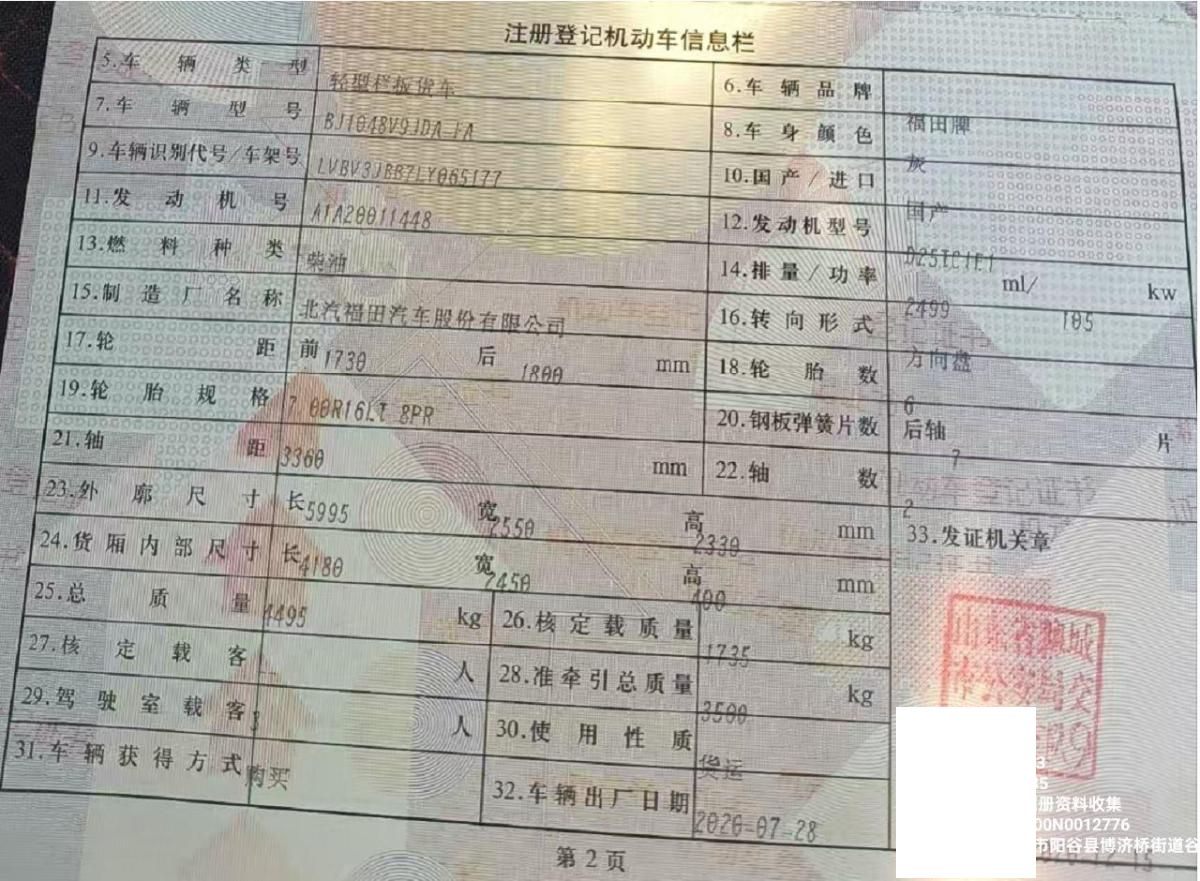 注册登记机动车信息栏
5.车辆类型 轻型栏板货车 6.车辆品牌 福田牌
7.车辆型号 BJ1048V9JDA-FA 8.车身颜色 灰
9.车辆识别代号/车架号 LVBV3JBB7LY065177 10.国产/进口 国产
11.发动机号 A1A20011448 12.发动机型号 D25TCIF1
13.燃料种类 柴油 14.排量/功率 2499 ml/ 105 kw
15.制造厂名称 北汽福田汽车股份有限公司 16.转向形式 方向盘
17.轮距 前1730 后1800 mm 18.轮胎数 6
19.轮胎规格 7.00R16LT 8PR 20.钢板弹簧片数 后轴 7 片
21.轴距 3360 mm 22.轴数 2
23.外廓尺寸 长5995 宽2550 高2330 mm 33.发证机关章
24.货厢内部尺寸 长4180 宽2450 高400 mm
25.总质量 4495 kg 26.核定载质量 1735 kg
27.核定载客 人 28.准牵引总质量 3500 kg
29.驾驶室载客 3 人 30.使用性质 货运
31.车辆获得方式 购买 32.车辆出厂日期 2020-07-28
册资料收集
00N0012776
市阳谷县博济桥街道谷
第2页